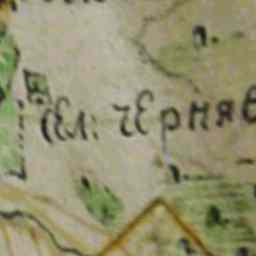 сел: черняв